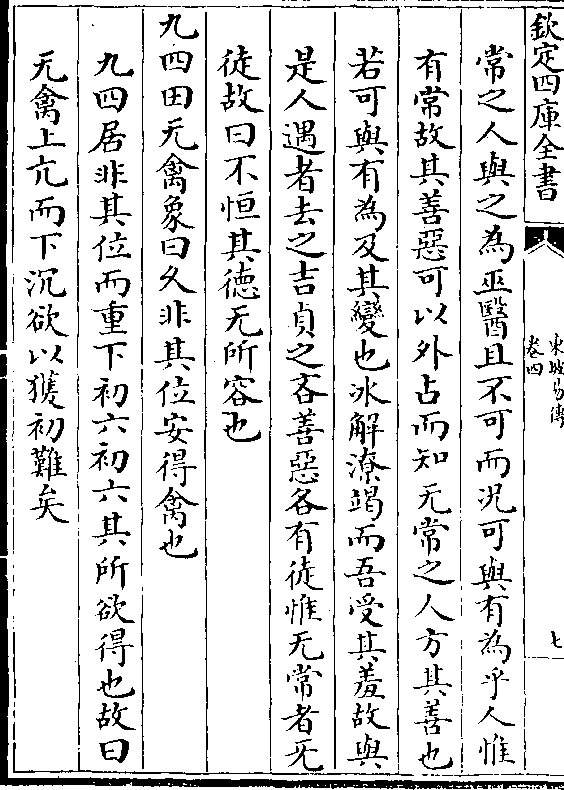 欽定四庫全書
東坡易傳
卷四
七
常之人與之為巫醫且不可而况可與有為乎人惟
有常故其善惡可以外占而知无常之人方其善也
若可與有為及其變也冰解潦竭而吾受其羞故與
是人遇者去之吉貞之吝善惡各有徒惟无常者无
徒故曰不恒其德无所容也
九四田无禽象曰久非其位安得禽也
九四居非其位而重下初六初六其所欲得也故曰
无禽上亢而下沉欲以獲初難矣